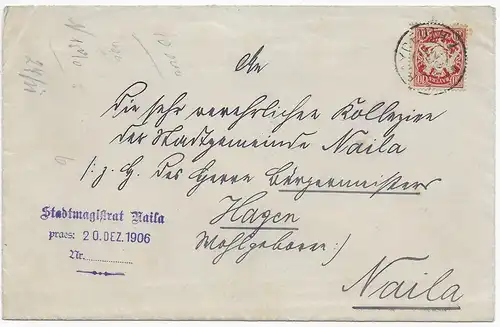 An
die sehr verehrlichen Kollegien
der Stadtgemeinde Naila
/: z. H. des Herrn Bürgermeisters
Hagen
Wohlgeboren :/
Naila
Stadtmagistrat Naila
praes: 20. DEZ. 1906
Nr.